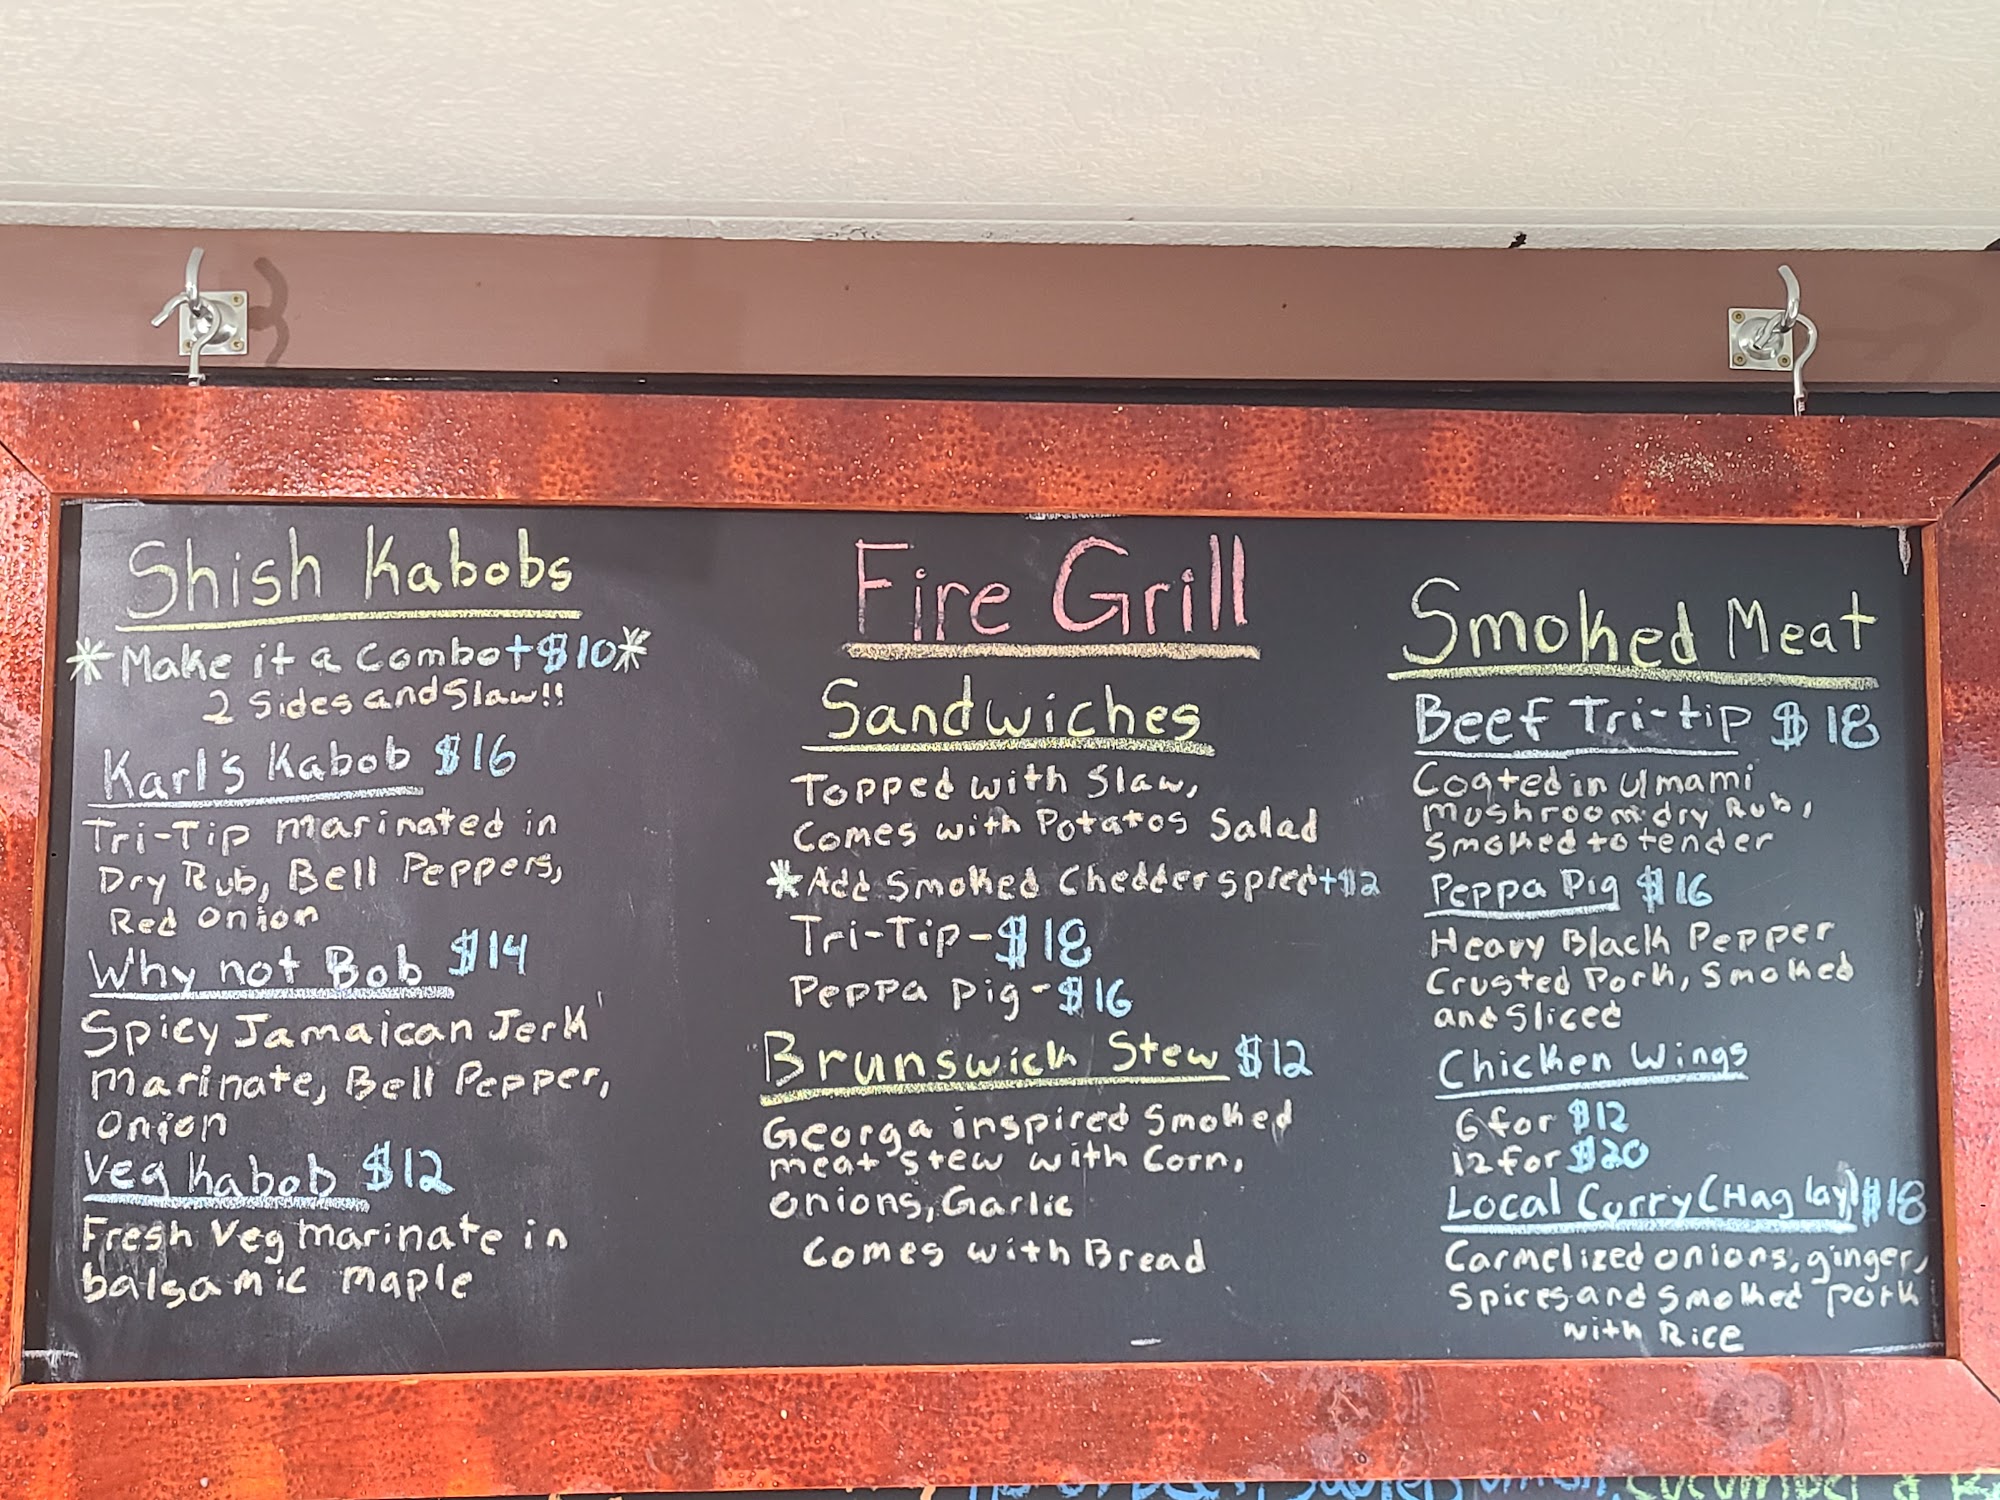 Shish Kabobs
*Make it a combo+$10*
2 Sides and Slaw!!
Karl's Kabob $16
Tri-Tip marinated in
Dry Rub, Bell Peppers,
Red onion
Why not Bob $14
Spicy Jamaican Jerk
marinate, Bell Pepper,
onion
Veg Kabob $12
Fresh Veg marinate in
balsamic maple
Fire Grill
Sandwiches
Topped with Slaw,
Comes with Potatos Salad
*Add Smoked Chedder spred+$2
Tri-Tip-$18
Peppa pig-$16
Brunswick Stew $12
Georga inspired Smoked
meat stew with Corn,
onions, Garlic
Comes with Bread
Smoked Meat
Beef Tri-tip $18
Coated in Umami
mushroom dry Rub,
Smoked to tender
Peppa Pig $16
Heavy Black Pepper
Crusted Pork, Smoked
and Sliced
Chicken Wings
6 for $12
12 for $20
Local Curry (Hag lay) $18
Carmelized onions, ginger,
Spices and smoked pork
with Rice